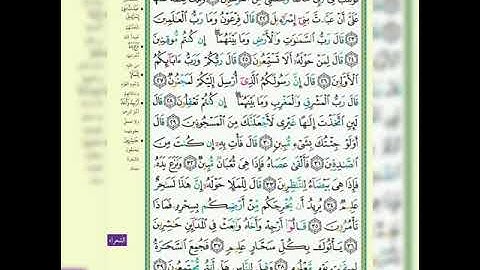 عَلَيَّ أَنْ عَبَّدتَّ بَنِي إِسْرَٰٓءِيلَ ٢٢ قَالَ فِرْعَوْنُ وَمَا رَبُّ ٱلْعَٰلَمِينَ
٢٣ قَالَ رَبُّ ٱلسَّمَٰوَٰتِ وَٱلْأَرْضِ وَمَا بَيْنَهُمَآ إِن كُنتُم مُّوقِنِينَ
٢٤ قَالَ لِمَنْ حَوْلَهُۥٓ أَلَا تَسْتَمِعُونَ ٢٥ قَالَ رَبُّكُمْ وَرَبُّ ءَابَآئِكُمُ
ٱلْأَوَّلِينَ ٢٦ قَالَ إِنَّ رَسُولَكُمُ ٱلَّذِىٓ أُرْسِلَ إِلَيْكُمْ لَمَجْنُونٌ ٢٧
قَالَ رَبُّ ٱلْمَشْرِقِ وَٱلْمَغْرِبِ وَمَا بَيْنَهُمَآ إِن كُنتُمْ تَعْقِلُونَ ٢٨ قَالَ
لَئِنِ ٱتَّخَذْتَ إِلَٰهًا غَيْرِى لَأَجْعَلَنَّكَ مِنَ ٱلْمَسْجُونِينَ ٢٩ قَالَ
أَوَلَوْ جِئْتُكَ بِشَىْءٍ مُّبِينٍ ٣٠ قَالَ فَأْتِ بِهِۦٓ إِن كُنتَ مِنَ
ٱلصَّٰدِقِينَ ٣١ فَأَلْقَىٰ عَصَاهُ فَإِذَا هِىَ ثُعْبَانٌ مُّبِينٌ ٣٢ وَنَزَعَ يَدَهُۥ
فَإِذَا هِىَ بَيْضَآءُ لِلنَّٰظِرِينَ ٣٣ قَالَ لِلْمَلَإِ حَوْلَهُۥٓ إِنَّ هَٰذَا لَسَٰحِرٌ
عَلِيمٌ ٣٤ يُرِيدُ أَن يُخْرِجَكُم مِّنْ أَرْضِكُم بِسِحْرِهِۦ فَمَاذَا
تَأْمُرُونَ ٣٥ قَالُوٓا۟ أَرْجِهْ وَأَخَاهُ وَٱبْعَثْ فِى ٱلْمَدَآئِنِ حَٰشِرِينَ
٣٦ يَأْتُوكَ بِكُلِّ سَحَّارٍ عَلِيمٍ ٣٧ فَجُمِعَ ٱلسَّحَرَةُ
لِمِيقَٰتِ يَوْمٍ مَّعْلُومٍ ٣٨ وَقِيلَ لِلنَّاسِ هَلْ أَنتُم مُّجْتَمِعُونَ ٣٩
الشعراء